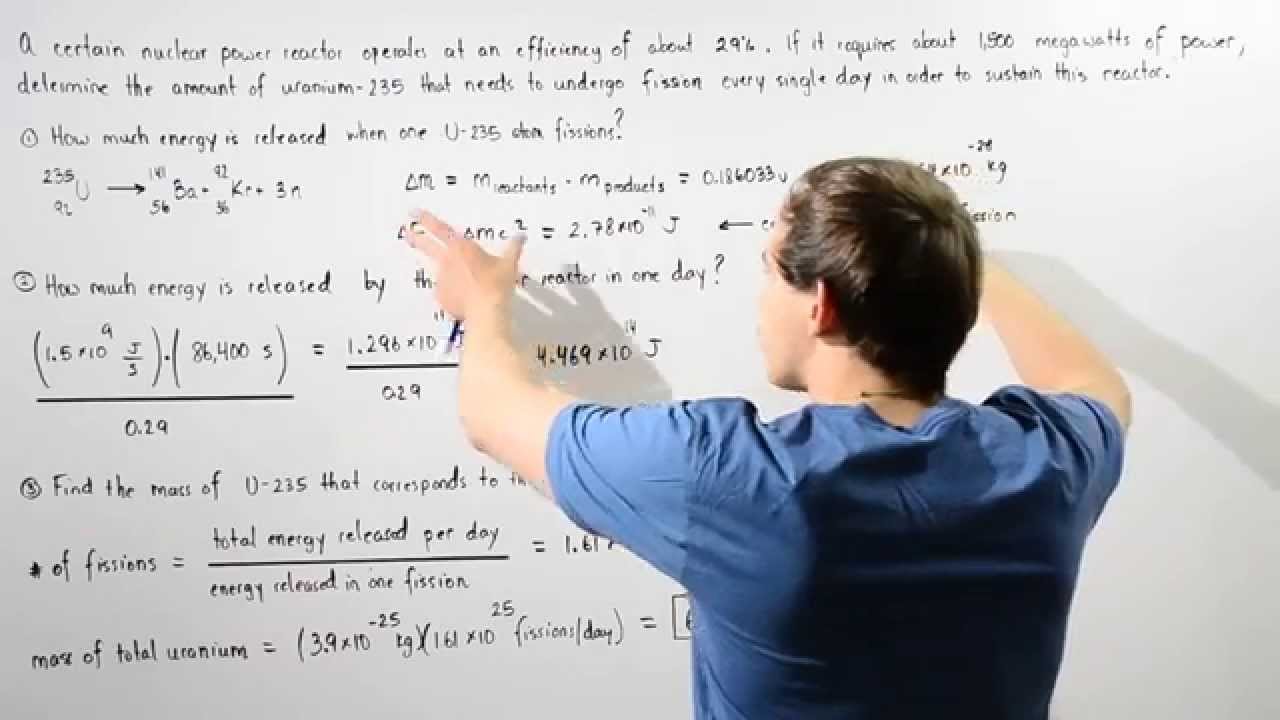 A certain nuclear power reactor operates at an efficiency of about 29%. If it requires about 1,500 megawatts of power,
determine the amount of uranium-235 that needs to undergo fission every single day in order to sustain this reactor.
① How much energy is released when one U-235 atom fissions?
²³⁵₉₂U → ¹⁴¹₅₆Ba + ⁹²₃₆Kr + 3n
Δm = m reactants - m products = 0.186033u ×10⁻²⁸ kg
Δmc² = 2.78×10⁻¹¹ J ←
② How much energy is released by reactor in one day?
(1.5×10⁹ J/s)·(86,400 s) / 0.29 = 1.296×10¹⁴ / 0.29 4.469×10¹⁴ J
③ Find the mass of U-235 that corresponds to
# of fissions = total energy released per day / energy released in one fission = 1.61
mass of total uranium = (3.9×10⁻²⁵ kg)(1.61×10²⁵ fissions/day) = 6